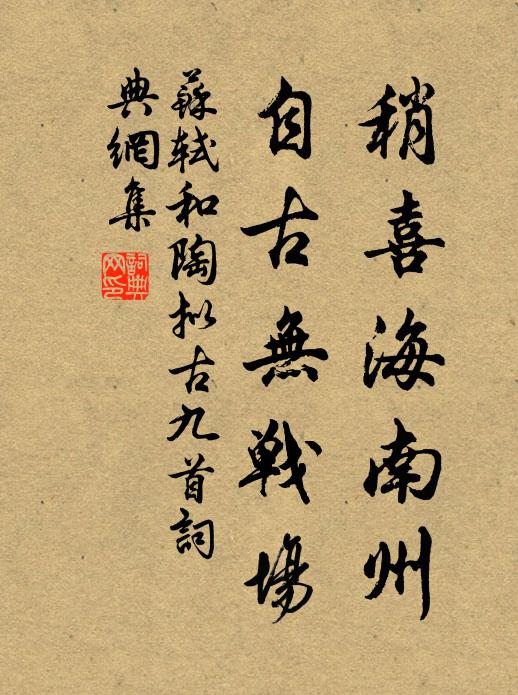 稍喜海南州
自古無戰場
蘇軾和陶拟古九首詞
典網集
詞典网印